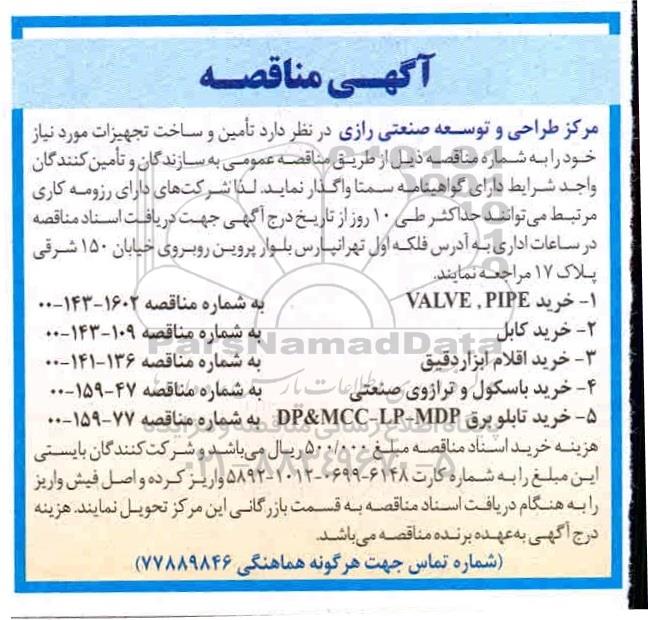 آگهی مناقصه
مرکز طراحی و توسعه صنعتی رازی در نظر دارد تأمین و ساخت تجهیزات مورد نیاز
خود را به شماره مناقصه ذیل از طریق مناقصه عمومی به سازندگان و تأمین کنندگان
واجد شرایط دارای گواهینامه سمتا واگذار نماید. لذا شرکت‌های دارای رزومه کاری
مرتبط می‌توانند حداکثر طی ۱۰ روز از تاریخ درج آگهی جهت دریافت اسناد مناقصه
در ساعات اداری به آدرس فلکه اول تهرانپارس بلوار پروین روبروی خیابان ۱۵۰ شرقی
پلاک ۱۷ مراجعه نمایند.
۱- خرید VALVE , PIPE به شماره مناقصه ۱۶۰۲-۱۴۳-۰۰
۲- خرید کابل به شماره مناقصه ۱۰۹-۱۴۳-۰۰
۳- خرید اقلام ابزار دقیق به شماره مناقصه ۱۳۶-۱۴۱-۰۰
۴- خرید باسکول و ترازوی صنعتی به شماره مناقصه ۴۷-۱۵۹-۰۰
۵- خرید تابلو برق DP&MCC-LP-MDP به شماره مناقصه ۷۷-۱۵۹-۰۰
هزینه خرید اسناد مناقصه مبلغ ۵۰۰/۰۰۰ ریال می‌باشد و شرکت کنندگان بایستی
این مبلغ را به شماره کارت ۶۱۴۸-۰۶۹۹-۱۰۱۲-۵۸۹۲ واریز کرده و اصل فیش واریز
را به هنگام دریافت اسناد مناقصه به قسمت بازرگانی این مرکز تحویل نمایند. هزینه
درج آگهی به عهده برنده مناقصه می‌باشد.
(شماره تماس جهت هرگونه هماهنگی ۷۷۸۸۹۸۴۶)
ParsNamadData
۰۲۱-۸۸۳۴۹۶۷۰-۵